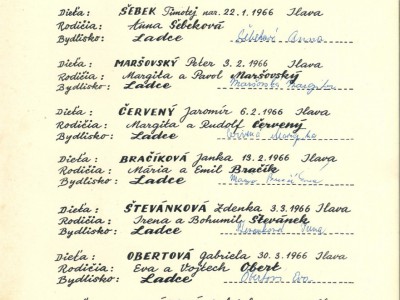 Dieťa: ŠEBEK Timotej nar. 22.1.1966 Ilava
Rodičia: Anna Šebeková
Bydlisko: Ladce Anna
Dieťa: MARŠOVSKÝ Peter 3.2.1966 Ilava
Rodičia: Margita a Pavol Maršovský
Bydlisko: Ladce
Dieťa: ČERVENÝ Jaromír 6.2.1966 Ilava
Rodičia: Margita a Rudolf Červený
Bydlisko: Ladce
Dieťa: BRAČÍKOVÁ Janka 13.2.1966 Ilava
Rodičia: Mária a Emil Bračík
Bydlisko: Ladce
Dieťa: ŠTEVÁNKOVÁ Zdenka 3.3.1966 Ilava
Rodičia: Irena a Bohumil Števánek
Bydlisko: Ladce
Dieťa: OBERTOVÁ Gabriela 30.3.1966 Ilava
Rodičia: Eva a Vojtech Obert
Bydlisko: Ladce Obertová Eva